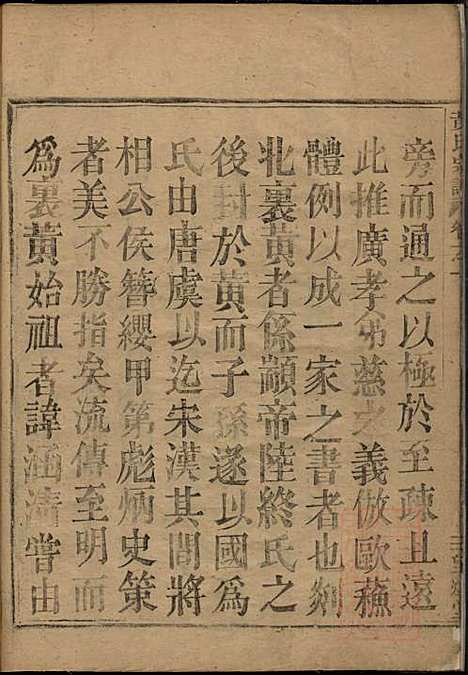 旁而通之以極於至疎且遠
此推廣孝弟慈之義倣歐蘇
體例以成一家之書者也剡
北裏黃者係顓帝陸終氏之
後封於黃而子孫遂以國為
氏由唐虞以迄宋漢其間將
相公侯簪纓甲第彪炳史策
者美不勝指矣流傳至明而
爲裏黃始祖者諱涵清嘗由